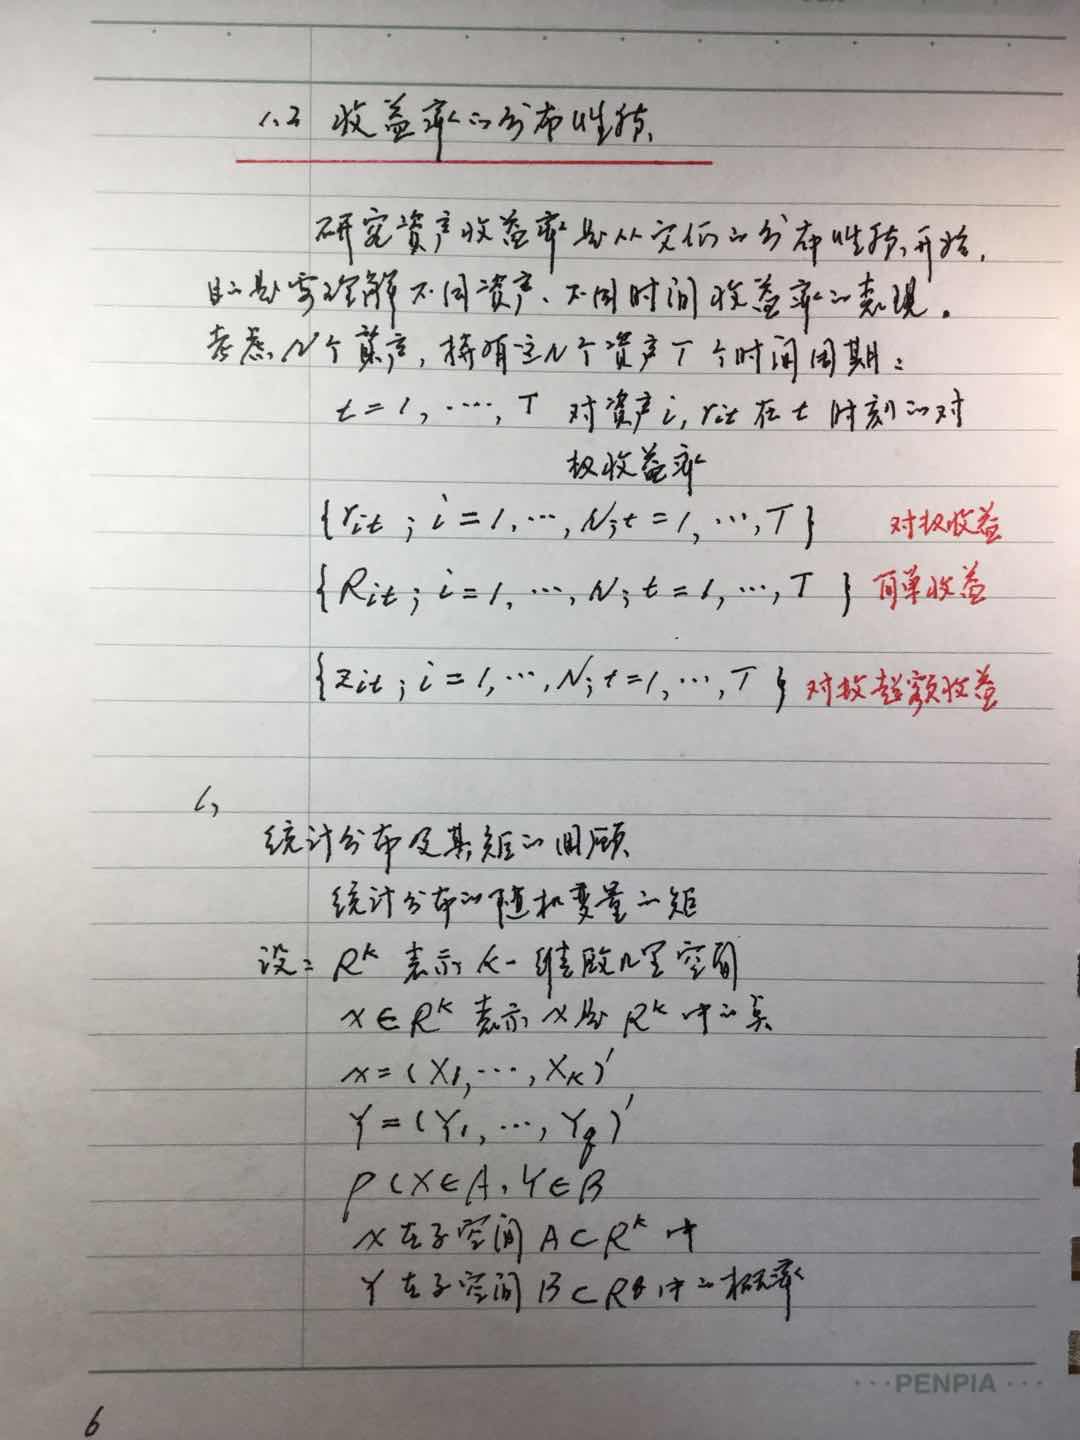 1.2 收益率的分布性质
研究资产收益率是从它们的分布性质开始,
目的是要理解不同资产、不同时间收益率的表现。
考虑N个资产,持有这N个资产T个时间周期:
t=1,…,T 对资产i,rit在t时刻的对
数收益率
{rit;i=1,…,N;t=1,…,T} 对数收益
{Rit;i=1,…,N;t=1,…,T} 简单收益
{zit;i=1,…,N;t=1,…,T} 对数超额收益
1,
统计分布及其矩的回顾
统计分布的随机变量的矩
设: R^k 表示k-维欧几里空间
x∈R^k 表示x是R^k中的点
x=(X1,…,Xk)'
Y=(Y1,…,Yq)'
P(X∈A,Y∈B
X在子空间A⊂R^k中
Y在子空间B⊂R^q中的概率
···PENPIA···
6